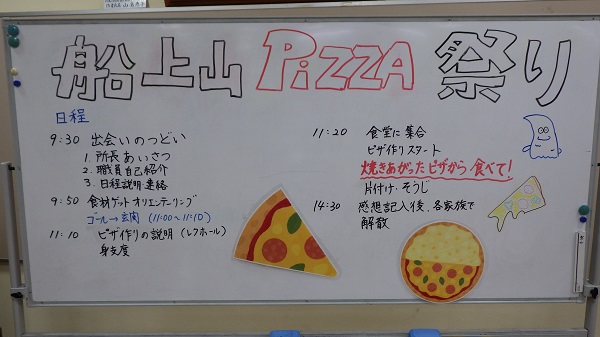 船上山 PiZZA 祭り
日程
9:30 出会いのつどい
1. 所長あいさつ
2. 職員自己紹介
3. 日程説明・連絡
9:50 食材ゲットオリエンテーリング
ゴール→玄関 (11:00～11:10)
11:10 ピザ作りの説明 (レクホール)
身支度
11:20 食堂に集合
ピザ作りスタート
焼きあがったピザから食べて!
片付け・そうじ
14:30 感想記入後、各家族で
解散